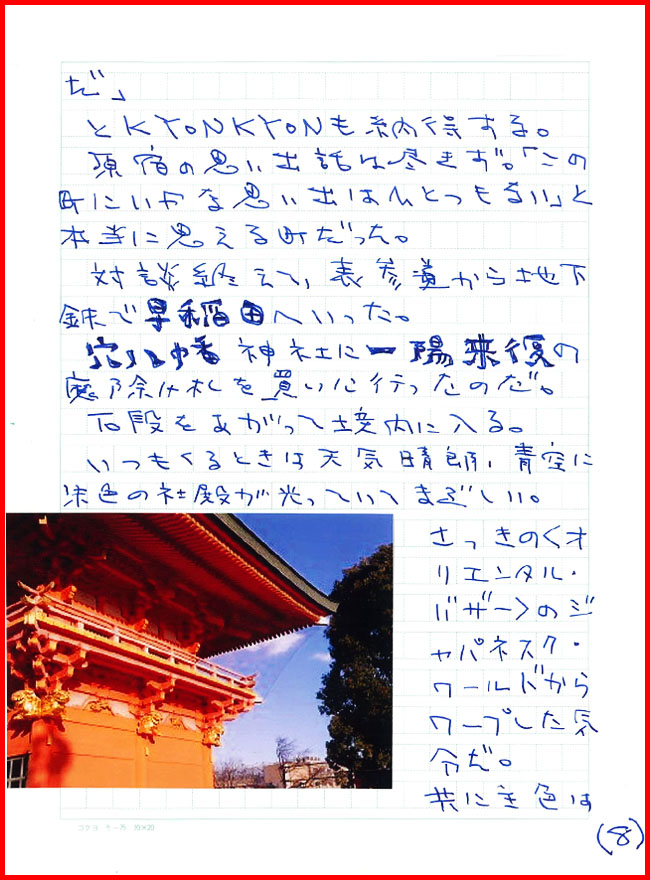 だ」
とKYONKYONも納得する。
原宿の思い出話は尽きず。「この
町にいやな思い出はひとつもない」と
本当に思える町だった。
対談終えて、表参道から地下
鉄で早稲田へいった。
穴八幡神社に一陽来復の
魔除け札を買いに行ったのだ。
石段をあがって境内に入る。
いつもくるときは天気晴朗、青空に
朱色の社殿が光っていてまぶしい。
さっきの〈オ
リエンタル・
バザー〉のジ
ャパネスク・
ワールドから
ワープした気
分だ。
共に主色は
コクヨ ケー75 20×20
(8)